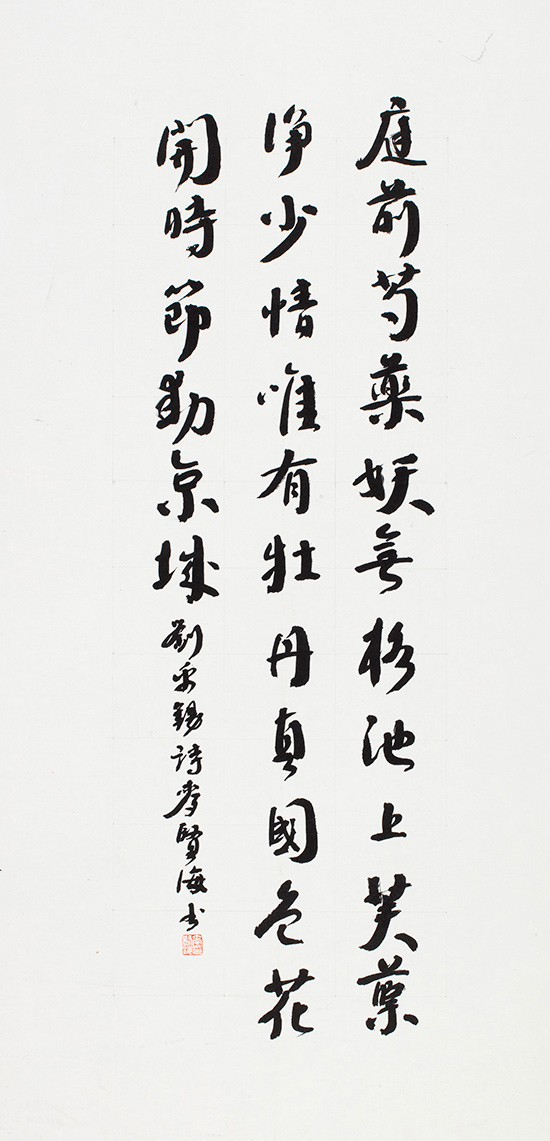 庭前芍藥妖無格池上芙蕖
淨少情唯有牡丹真國色花
開時節動京城劉禹錫詩李賢海書